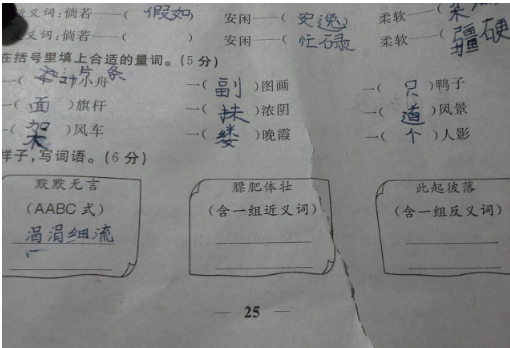 义词:倘若——(假如) 安闲——(安逸) 柔软——(
义词:倘若——( ) 安闲——(忙碌) 柔软——(疆硬
在括号里填上合适的量词。(5分)
一(条)小舟 一(副)图画 一(只)鸭子
一(面)旗杆 一(抹)浓阴 一(道)风景
一(架)风车 一(缕)晚霞 一(个)人影
样子,写词语。(6分)
默默无言 膘肥体壮 此起彼落
(AABC式) (含一组近义词) (含一组反义词)
涓涓细流
— 25 —